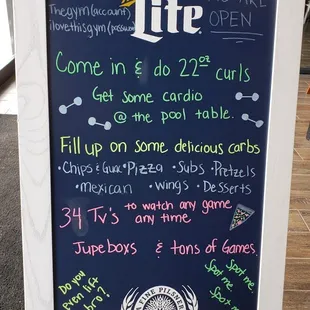 Thegym(account)
ilovethisgym(password)
Lite
ARE
OPEN
Come in & do 22oz curls
Get some cardio
@ the pool table.
Fill up on some delicious carbs
•Chips & Guac •Pizza •Subs •Pretzels
•mexican •wings •Desserts
34 Tv's to watch any game
any time
Jupeboxs & tons of Games
Do you
even lift
bro?
Spot me
Spot me
Spot me
A FINE PILSNER